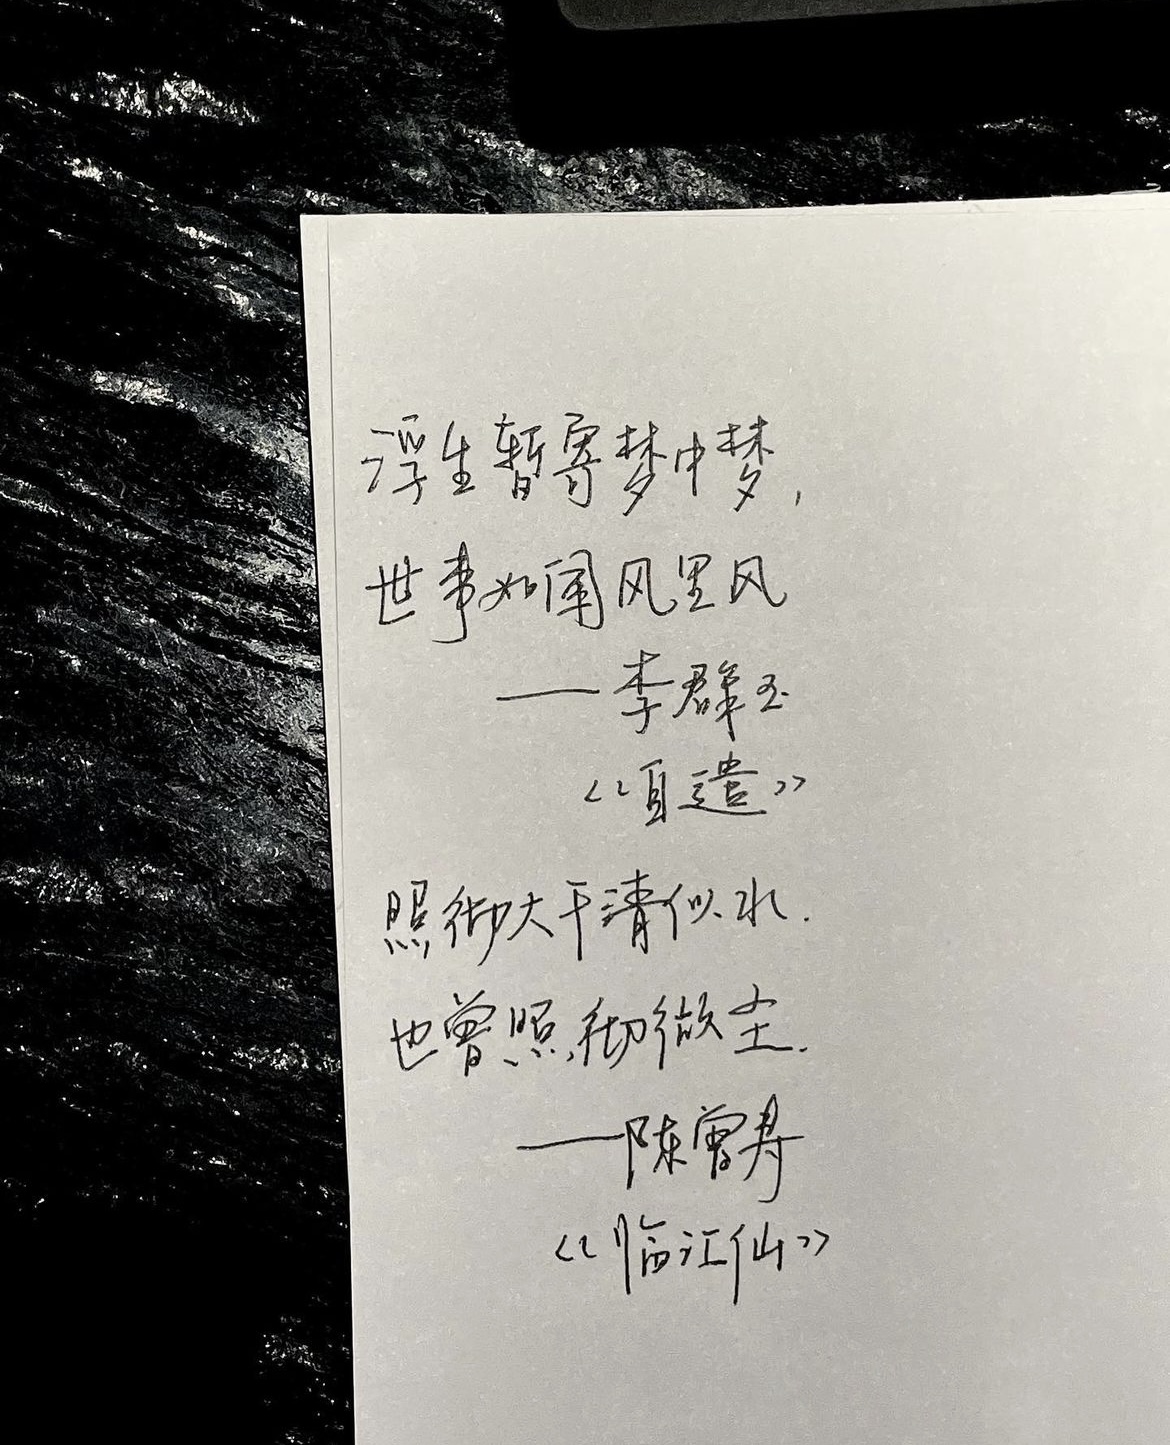 浮生暂寄梦中梦,
世事如闻风里风
——李群玉
《自遣》
照彻大千清似水.
也曾照彻微尘.
——陈曾寿
《临江仙》